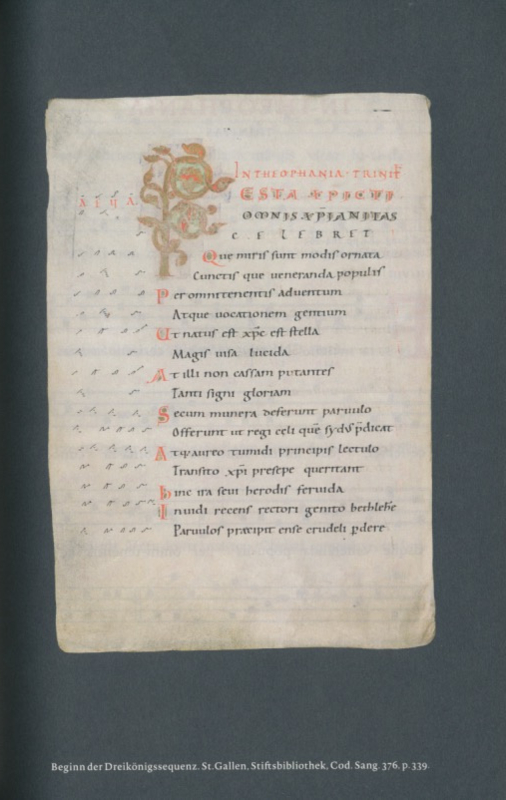 IN THEOPHANIA · TRINIT̄
FESTA XP̄ICTI
OMNIS XP̄IANITAS
CELEBRET
Que miris sunt modis ornata
Cunctis que ueneranda populis
Per omnitenentis aduentum
Atque uocationem gentium
Ut natus est xp̄c est stella
Magis uisa lucida
At illi non cassam putantes
Tanti signi gloriam
Secum munera deferunt paruulo
Offerunt ut regi celi quē sydus p̄dicat
Atq; aureo tumidi principis lectulo
Transito xp̄i presepe queritant
Hinc ira seui herodis feruida
Inuidi recens rectori genito bethlehē
Paruulos precipit ense crudeli ꝑdere
Beginn der Dreikönigssequenz. St. Gallen, Stiftsbibliothek, Cod. Sang. 376, p. 339.